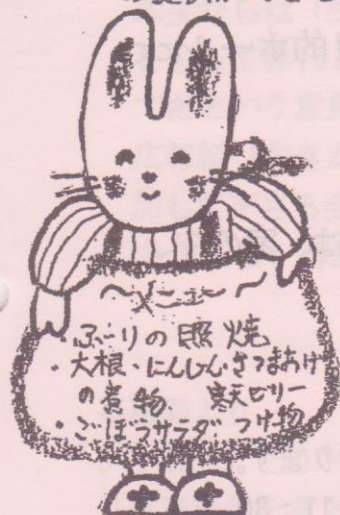 〜メニュー〜
・ぶりの照焼
・大根・にんじん さつまあげ
の煮物、 寒天ゼリー
・ごぼうサラダ つけ物